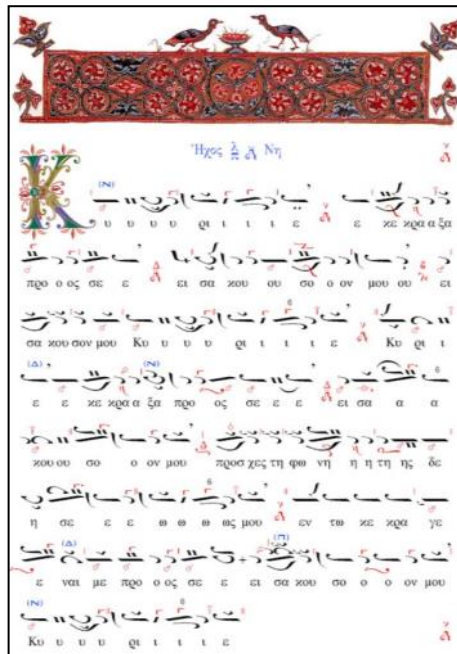 Ἦχος λ π δ Νη
Κ υ υ υ υ ρι ι ι ι ε ε κε κρα α ξα
προ ο ος σε ε ει σα κου ου σο ο ον μου ου ει
σα κου σον μου Κυ υ υ υ ρι ι ι ι ε Κυ ρι ι
ε ε κε κρα α ξα προ ος σε ε ε ει σα α α
κου ου σο ο ον μου προσ χες τη φω νη η η τη ης δε
η σε ε ε ω ω ω ως μου εν τω κε κρα γε
ε ναι με προ ο ος σε ε ει σα κου σο ο ο ον μου
Κυ υ υ υ ρι ι ι ι ε